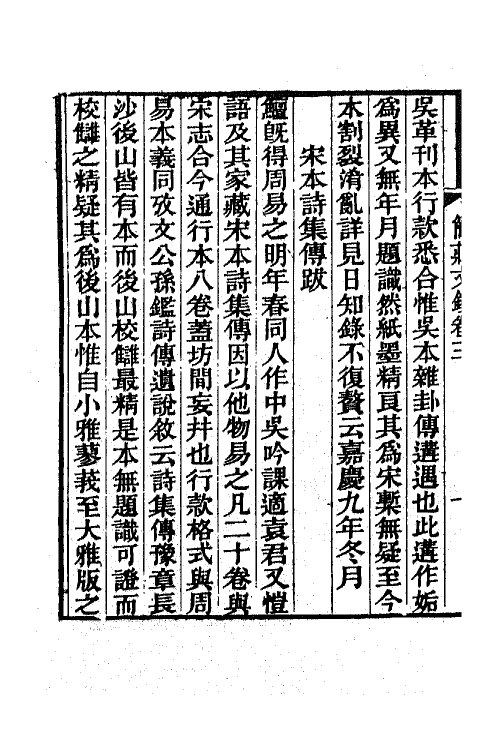 簡莊文鈔卷三
一
吳革刊本行款悉合惟吳本雜卦傳遘遇也此遘作姤
為異又無年月題識然紙墨精良其為宋槧無疑至今
本割裂淆亂詳見日知錄不復贅云嘉慶九年冬月
宋本詩集傳跋
鱣旣得周易之明年春同人作中吳吟課適袁君又愷
語及其家藏宋本詩集傳因以他物易之凡二十卷與
宋志合今通行本八卷蓋坊間妄幷也行款格式與周
易本義同攷文公孫鑑詩傳遺說敘云詩集傳豫章長
沙後山皆有本而後山校讎最精是本無題識可證而
校讎之精疑其為後山本惟自小雅蓼莪至大雅版之